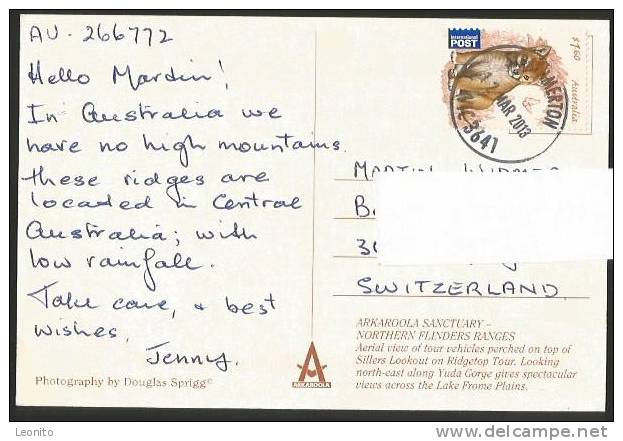 AU-266772
Hello Martin!
In Australia we
have no high mountains.
these ridges are
located in Central
Australia; with
low rainfall.
Take care, & best
wishes,
Jenny.
Photography by Douglas Sprigg©
ARKAROOLA
International
POST
$1.60
Australia
MERTON
MAR 2013
VIC 3641
MARTIN
SWITZERLAND
ARKAROOLA SANCTUARY –
NORTHERN FLINDERS RANGES
Aerial view of tour vehicles perched on top of
Sillers Lookout on Ridgetop Tour. Looking
north-east along Yuda Gorge gives spectacular
views across the Lake Frome Plains.
delcampe.net